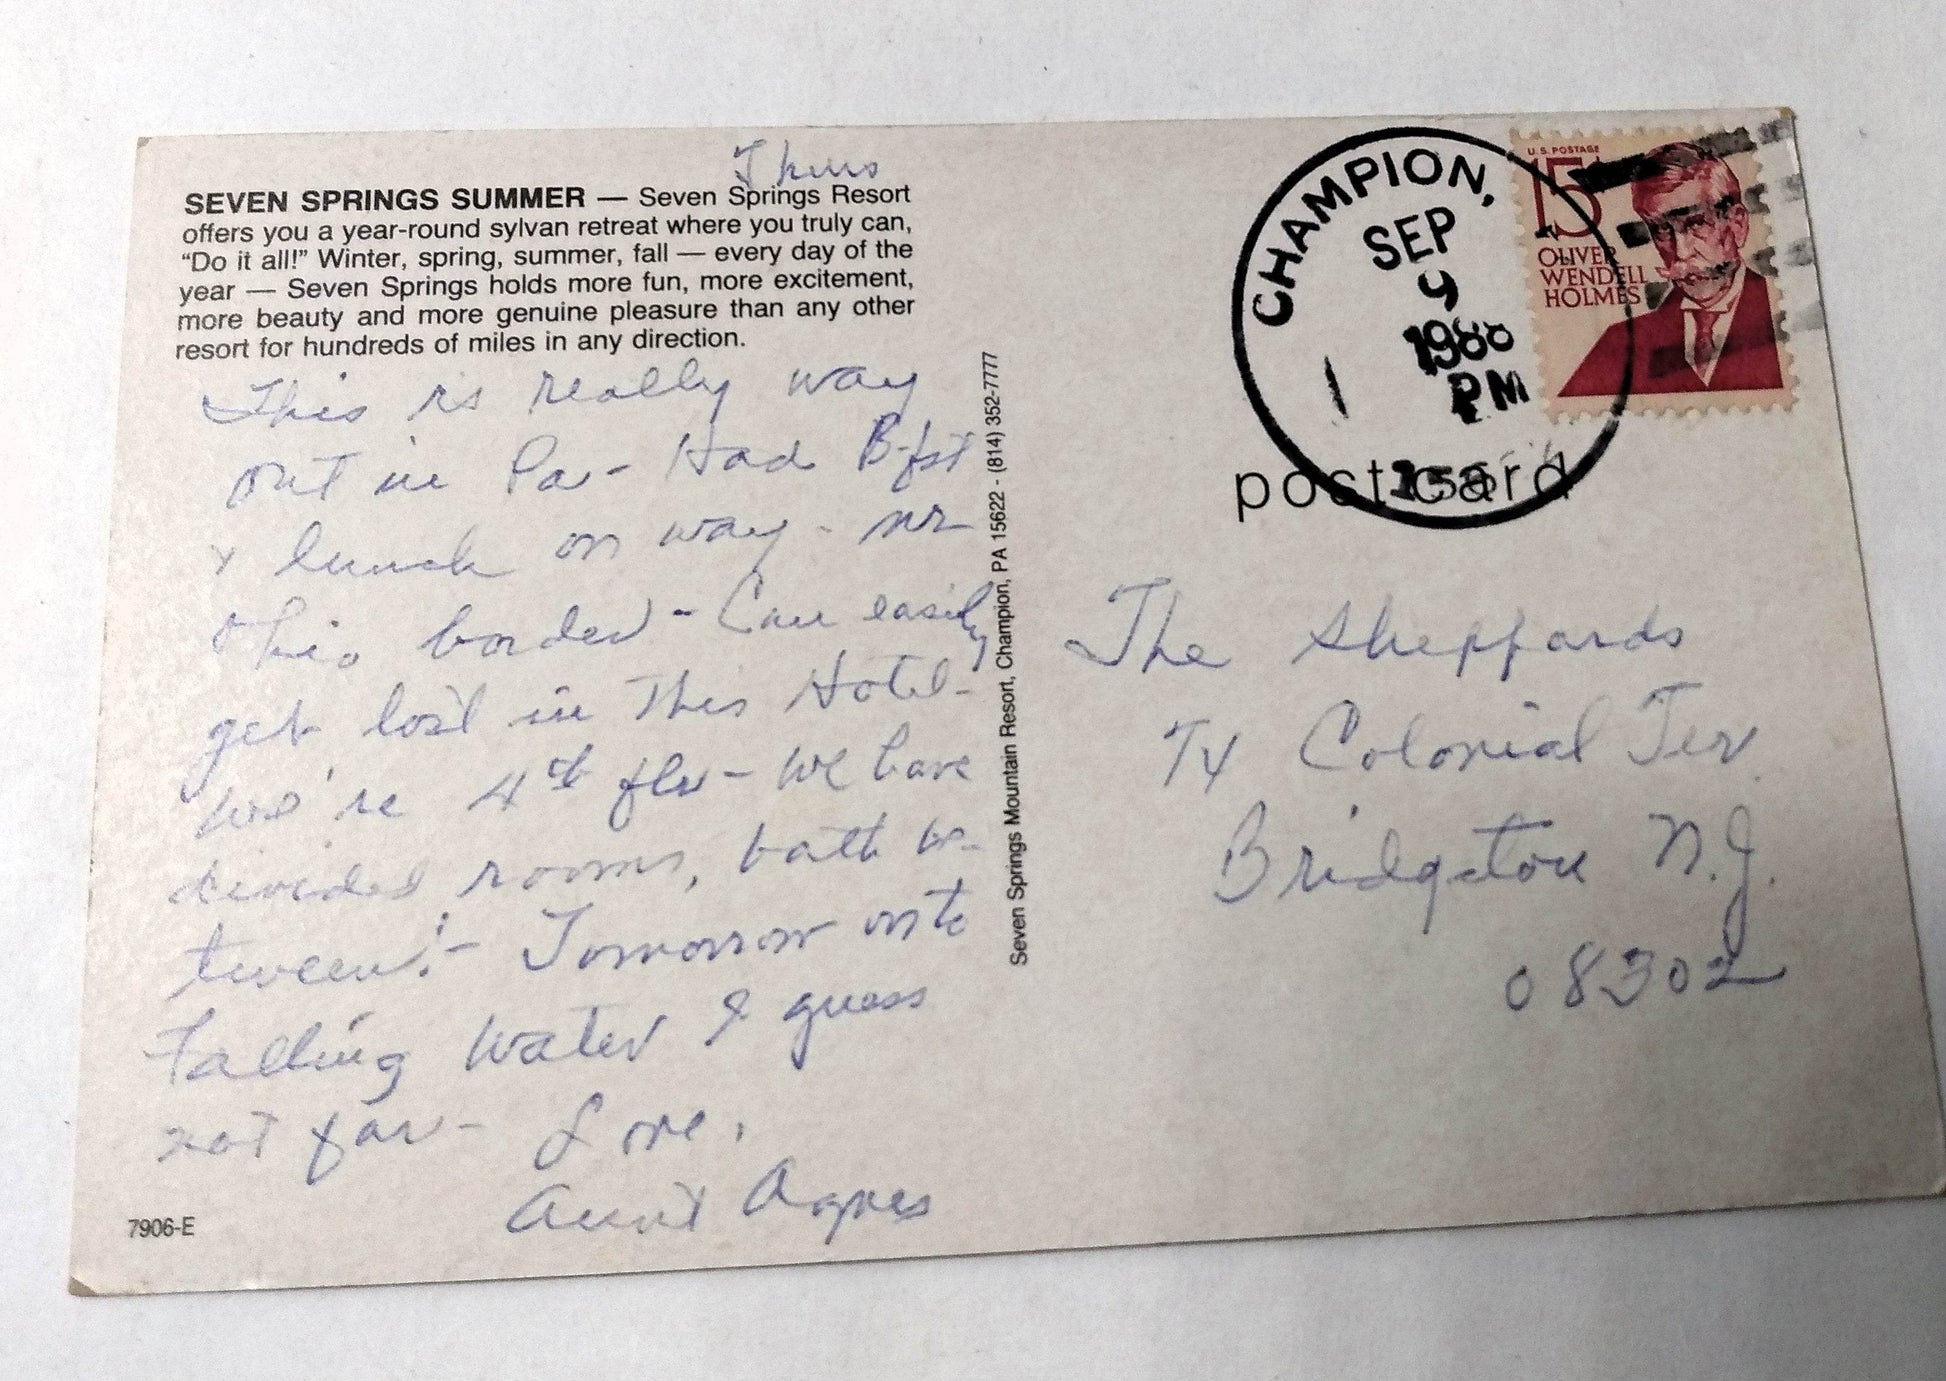 Thurs
SEVEN SPRINGS SUMMER — Seven Springs Resort
offers you a year-round sylvan retreat where you truly can,
“Do it all!” Winter, spring, summer, fall — every day of the
year — Seven Springs holds more fun, more excitement,
more beauty and more genuine pleasure than any other
resort for hundreds of miles in any direction.
This is really way
out in Pa - Had B-fst
& lunch on way - nr
Ohio border - Can easily
get lost in this Hotel -
We're 4th flr - We have
divided rooms, bath be-
tween! - Tomorrow on to
Falling Water I guess
not far - Love,
Aunt Agnes
7906-E
Seven Springs Mountain Resort, Champion, PA 15622 - (814) 352-7777
CHAMPION,
SEP
9
1988
PM
U.S. POSTAGE
15¢
OLIVER
WENDELL
HOLMES
post card
The Sheppards
74 Colonial Ter.
Bridgeton N.J.
08302